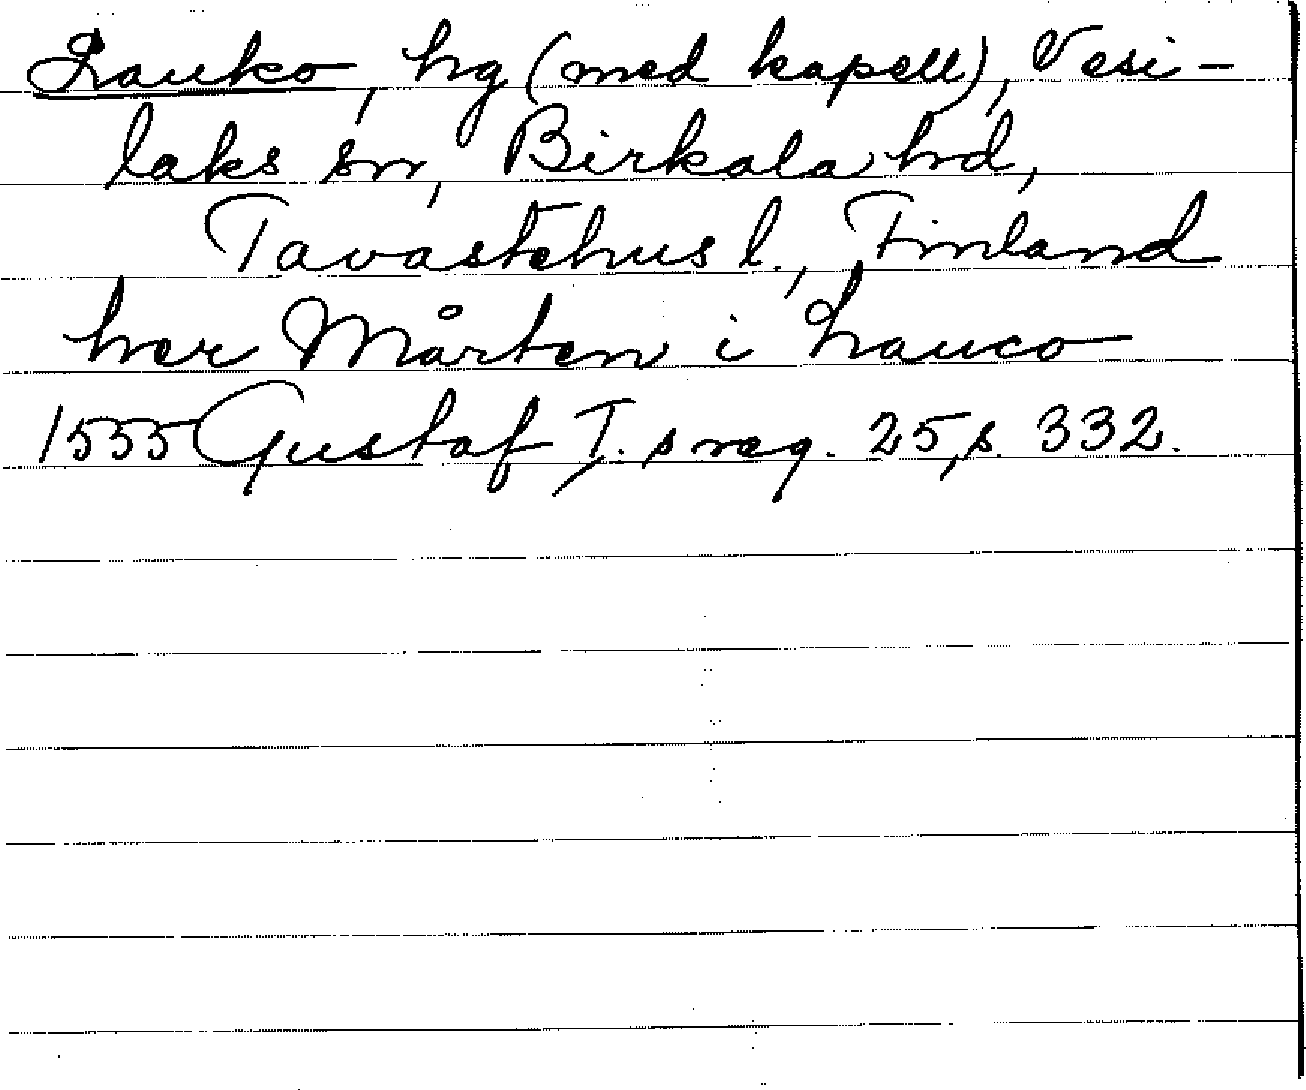 Lauko, hg (med kapell), Vesi-
laks sn, Birkala hd,
Tavastehus l., Finland
her Mårten i Lauco
1555 Gustaf I. s reg. 25, s. 332.